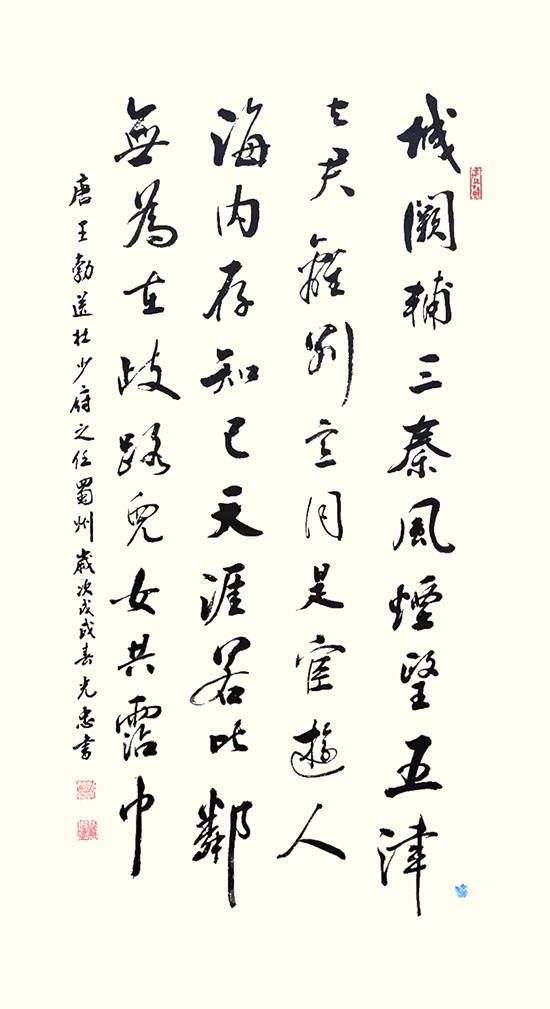 城闕輔三秦風煙望五津
与君離別意同是宦遊人
海内存知己天涯若比鄰
無為在歧路兒女共霑巾
唐王勃送杜少府之任蜀州歲次戊戌春光忠書